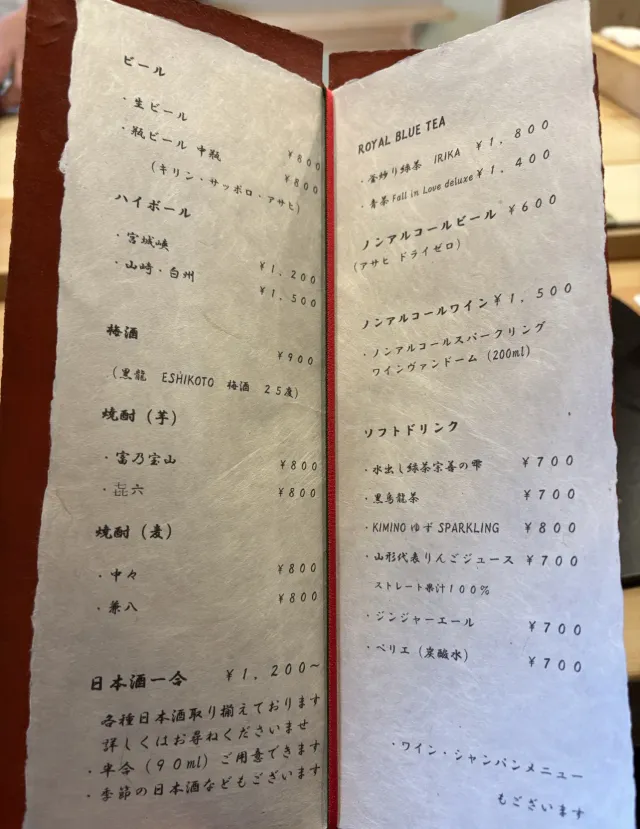 ビール
・生ビール ¥800
・瓶ビール 中瓶 ¥800
(キリン・サッポロ・アサヒ)
ハイボール
・宮城峡 ¥1,200
・山崎・白州 ¥1,500
梅酒 ¥900
(黒龍 ESHIKOTO 梅酒 25度)
焼酎(芋)
・富乃宝山 ¥800
・㐂六 ¥800
焼酎(麦)
・中々 ¥800
・兼八 ¥800
日本酒一合 ¥1,200~
各種日本酒取り揃えております
詳しくはお尋ねくださいませ
・半合(90ml)ご用意できます
・季節の日本酒などもございます
ROYAL BLUE TEA
・釜炒り緑茶 IRIKA ¥1,800
・青茶 Fall in Love deluxe ¥1,400
ノンアルコールビール ¥600
(アサヒ ドライゼロ)
ノンアルコールワイン ¥1,500
・ノンアルコールスパークリング
ワインヴァンドーム(200ml)
ソフトドリンク
・水出し緑茶宗善の雫 ¥700
・黒烏龍茶 ¥700
・KIMINO ゆず SPARKLING ¥800
・山形代表りんごジュース ¥700
ストレート果汁100%
・ジンジャーエール ¥700
・ペリエ(炭酸水) ¥700
・ワイン・シャンパンメニュー
もございます